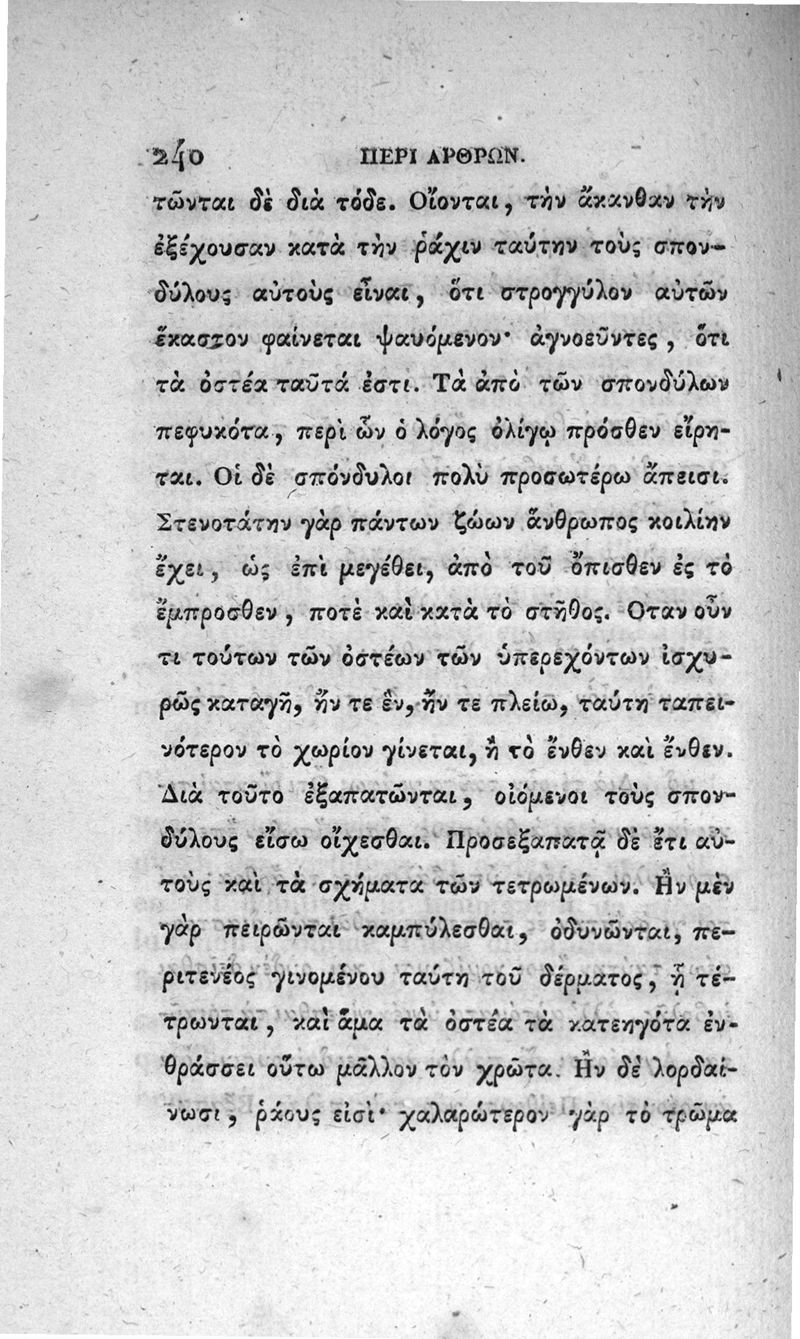 240 ΠΕΡΙ ΑΡΘΡΩΝ.
τῶνται δὲ διὰ τόδε. Οἴονται, τὴν ἄκανθαν τὴν
ἐξέχουσαν κατὰ τὴν ῥάχιν ταύτην τοὺς σπον-
δύλους αὐτοὺς εἶναι, ὅτι στρογγύλον αὐτῶν
ἕκαστον φαίνεται ψαυόμενον· ἀγνοεῦντες, ὅτι
τὰ ὀστέα ταῦτά ἐστι. Τὰ ἀπὸ τῶν σπονδύλων
πεφυκότα, περὶ ὧν ὁ λόγος ὀλίγῳ πρόσθεν εἴρη-
ται. Οἱ δὲ σπόνδυλοι πολὺ προσωτέρω ἄπεισι.
Στενοτάτην γὰρ πάντων ζώων ἄνθρωπος κοιλίην
ἔχει, ὡς ἐπὶ μεγέθει, ἀπὸ τοῦ ὄπισθεν ἐς τὸ
ἔμπροσθεν, ποτὲ καὶ κατὰ τὸ στῆθος. Οταν οὖν
τι τούτων τῶν ὀστέων τῶν ὑπερεχόντων ἰσχυ-
ρῶς καταγῆ, ἤν τε ἓν, ἤν τε πλείω, ταύτη ταπει-
νότερον τὸ χωρίον γίνεται, ἢ τὸ ἔνθεν καὶ ἔνθεν.
Διὰ τοῦτο ἐξαπατῶνται, οἰόμενοι τοὺς σπον-
δύλους εἴσω οἴχεσθαι. Προσεξαπατᾷ δὲ ἔτι αὐ-
τοὺς καὶ τὰ σχήματα τῶν τετρωμένων. Ἢν μὲν
γὰρ πειρῶνται καμπύλεσθαι, ὀδυνῶνται, πε-
ριτενέος γινομένου ταύτη τοῦ δέρματος, ᾗ τέ-
τρωνται, καὶ ἅμα τὰ ὀστέα τὰ κατεηγότα ἐν-
θράσσει οὕτω μᾶλλον τὸν χρῶτα. Ἢν δὲ λορδαί-
νωσι, ῥάους εἰσὶ· χαλαρώτερον γὰρ τὸ τρῶμα